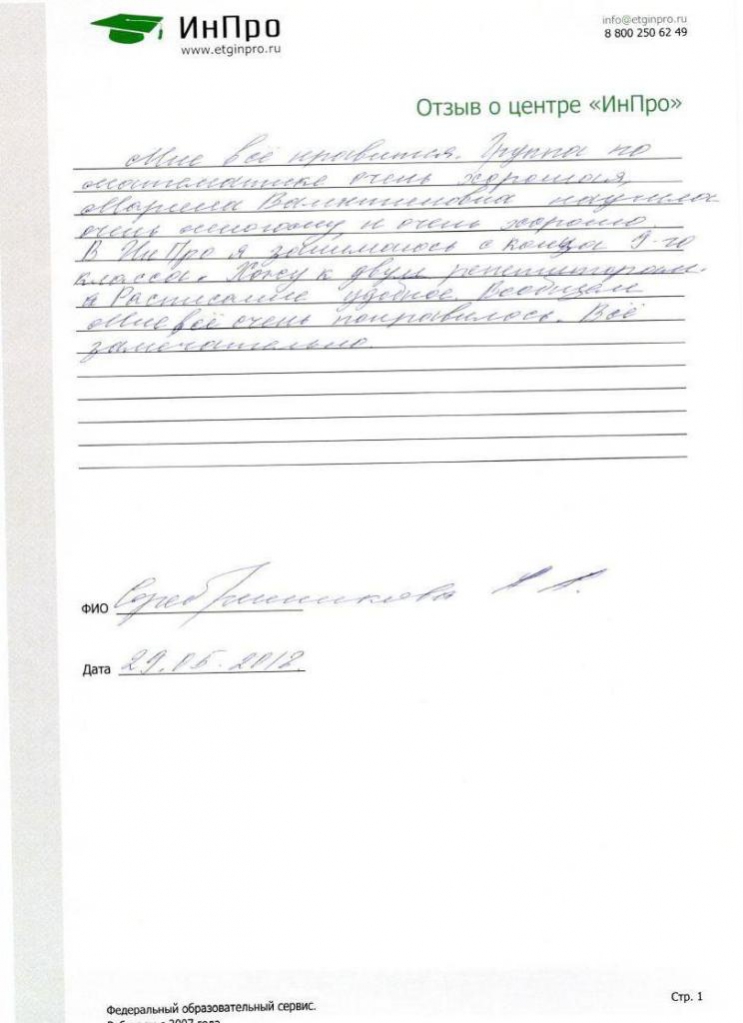 ИнПро
www.etginpro.ru
info@etginpro.ru
8 800 250 62 49
Отзыв о центре «ИнПро»
Мне всё нравится. Группа по
математике очень хорошая,
Марина Валентиновна научила
очень многому и очень хорошо
В ИнПро я занимаюсь с конца 9-го
класса. Хожу к двум репетиторам.
Расписание удобное. Вообщем
мне всё очень понравилось. Всё
замечательно.
ФИО Серебрянникова
Дата 29.05.2012.
Федеральный образовательный сервис.
Стр. 1